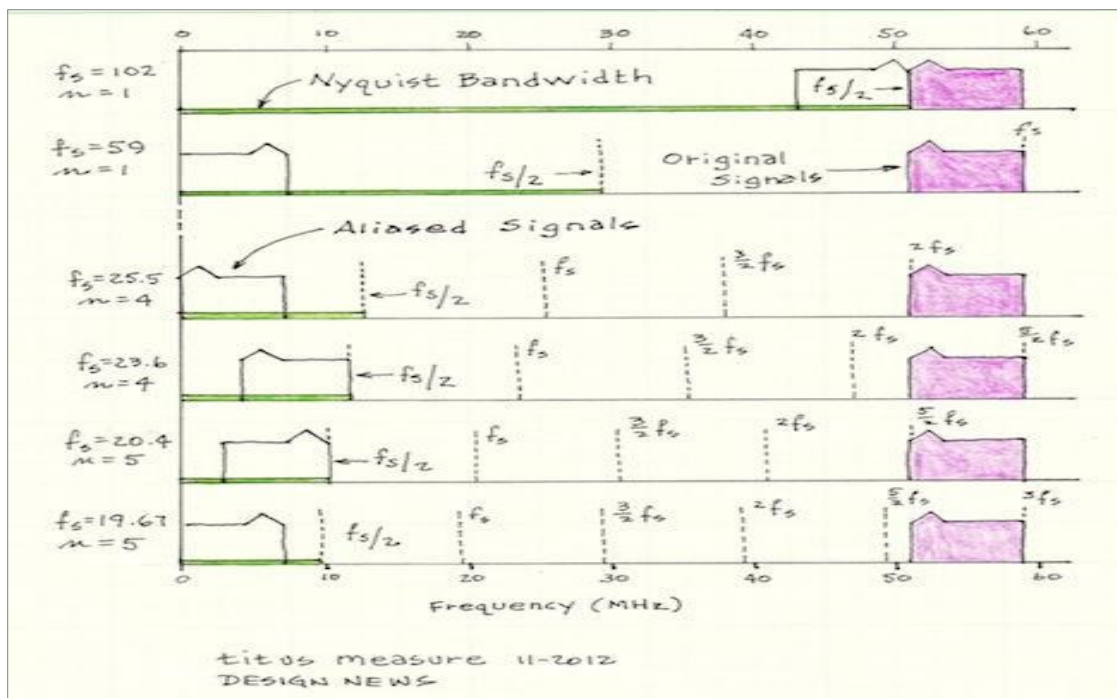 0 10 20 30 40 50 60
fs=102
n=1
Nyquist Bandwidth
fs/2
fs=59
n=1
fs/2
Original
Signals
fs
Aliased Signals
fs=25.5
n=4
fs/2
fs
3/2 fs
2fs
fs=23.6
n=4
fs/2
fs
3/2 fs
2fs
5/2 fs
fs=20.4
n=5
fs/2
fs
3/2 fs
2fs
5/2 fs
fs=19.67
n=5
fs/2
fs
3/2 fs
2fs
5/2 fs
3fs
0 10 20 30 40 50 60
Frequency (MHz)
titus measure 11-2012
DESIGN NEWS